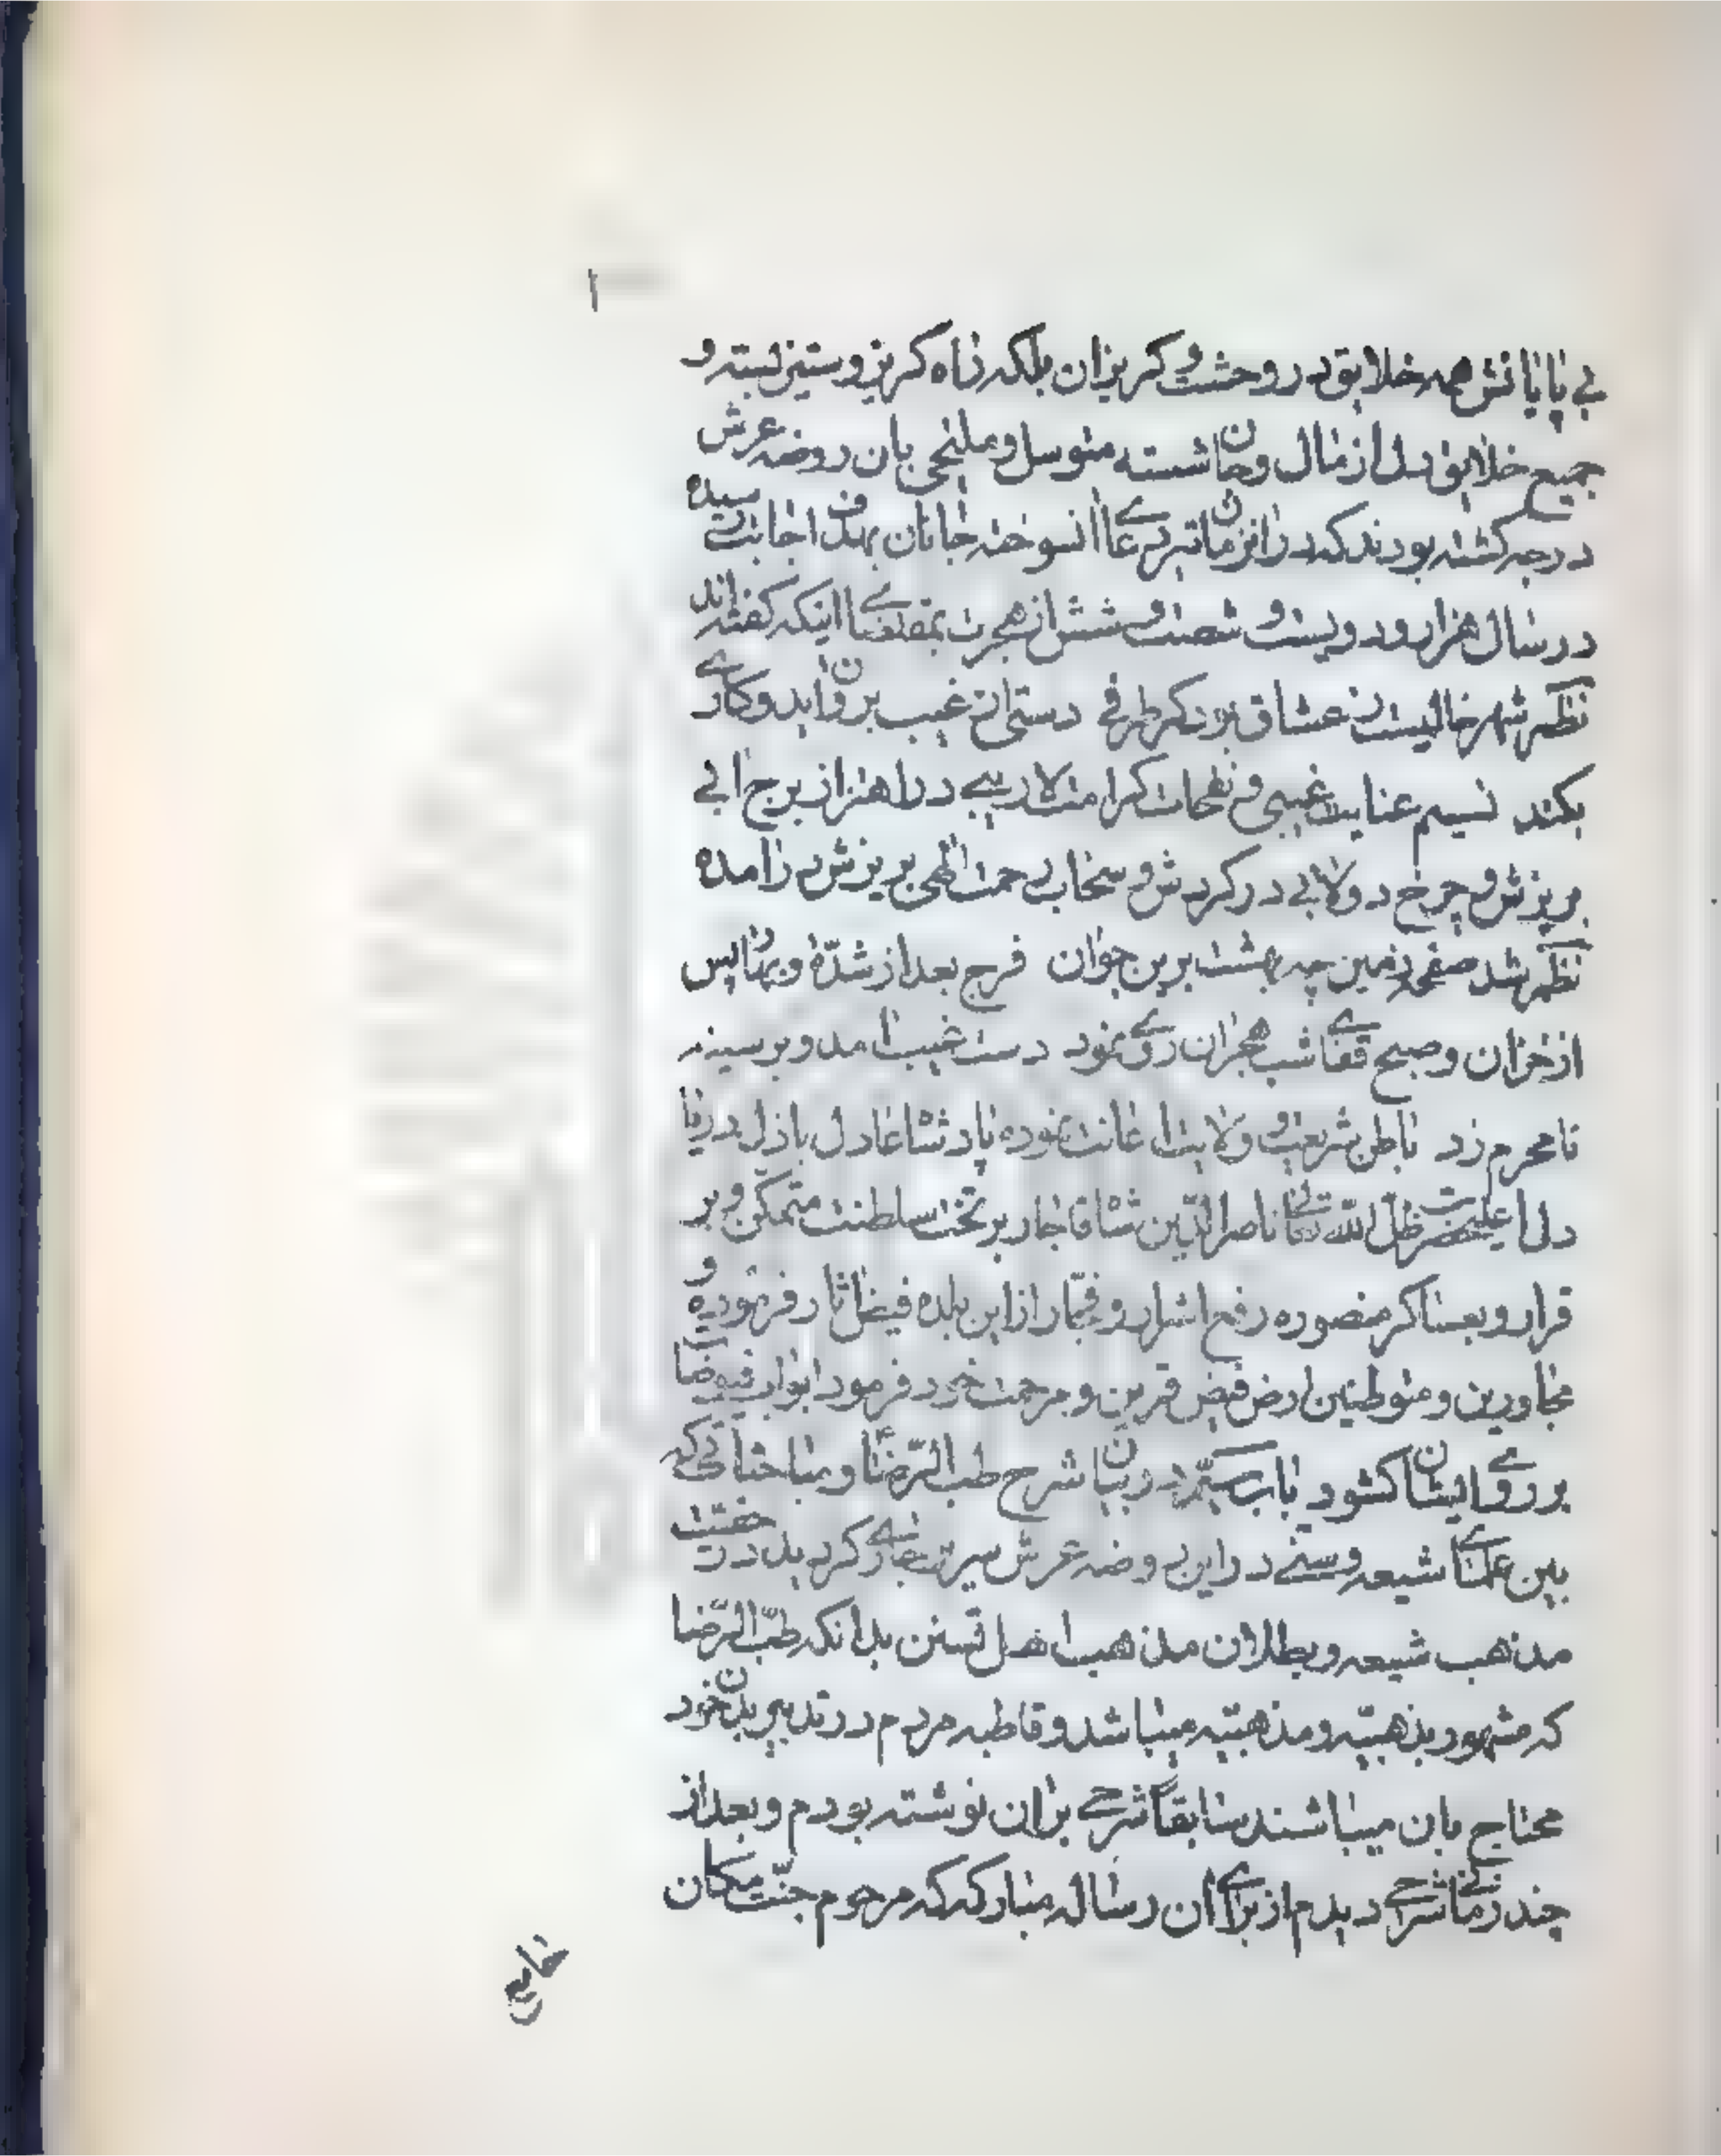 ۱
بی پایانش همه خلایق در وحشت و گریزان بلکه راه گریز و ستیز بسته و
جمیع خلایق دل از مال و جان شسته متوسل و ملتجی بان روضه عرش
درجه گشته بودند که در انزمان تیر دعای انسوخته جانان بهدف اجابت رسیده
در سال هزار و دویست و شصت و شش از هجرت بمقتضای اینکه گفته اند
نظم شهر خالیست ز عشاق بود کز طرفی دستی از غیب برون اید و کاری
بکند نسیم عنایت غیبی و نفحات کرامت لاریبی در اهتزاز برج ابی
بریزش و چرخ دولابی در گردش و سحاب رحمت الهی بریزش در امده
نظم شد صفحه زمین چه بهشت برین جوان فرج بعد از شدة و بهار پس
از خزان و صبح قفای شب هجران روی نمود دست غیب امد و بر سینه
نامحرم زد باطن شریعت و ولایت اعانت نموده پادشاه عادل باذل دریا
دل اعلیحضرت ظل الله تعالی ناصر الدین شاه قاجار بر تخت سلطنت متمکن و بر
قرار و بعساکر منصوره رفع اشرار و فجّار از این بلده فیض اثار فرموده و
مجاورین و متوطنین ارض فیض قرین و مرحمت خود فرمود ابواب فیوضات
بر روی ایشان گشود باب سیّم در بیان شرح طب الرّضا و مباحثاتی که
بین علمای شیعه و سنی در این روضه عرش سیر تعاری کرده بد در حقیّت
مذهب شیعه و بطلان مذهب اهل تسنن بدانکه طبّ الرّضا
که مشهور بذهبیّه و مذهبیّه میباشد و قاطبه مردم در تدبیر بدن خود
محتاج بان میباشند سابقاً شرحی بران نوشته بودم و بعد از
چند زمانی شرحی دیدم از برای ان رساله مبارکه که مرحوم جنّت مکان